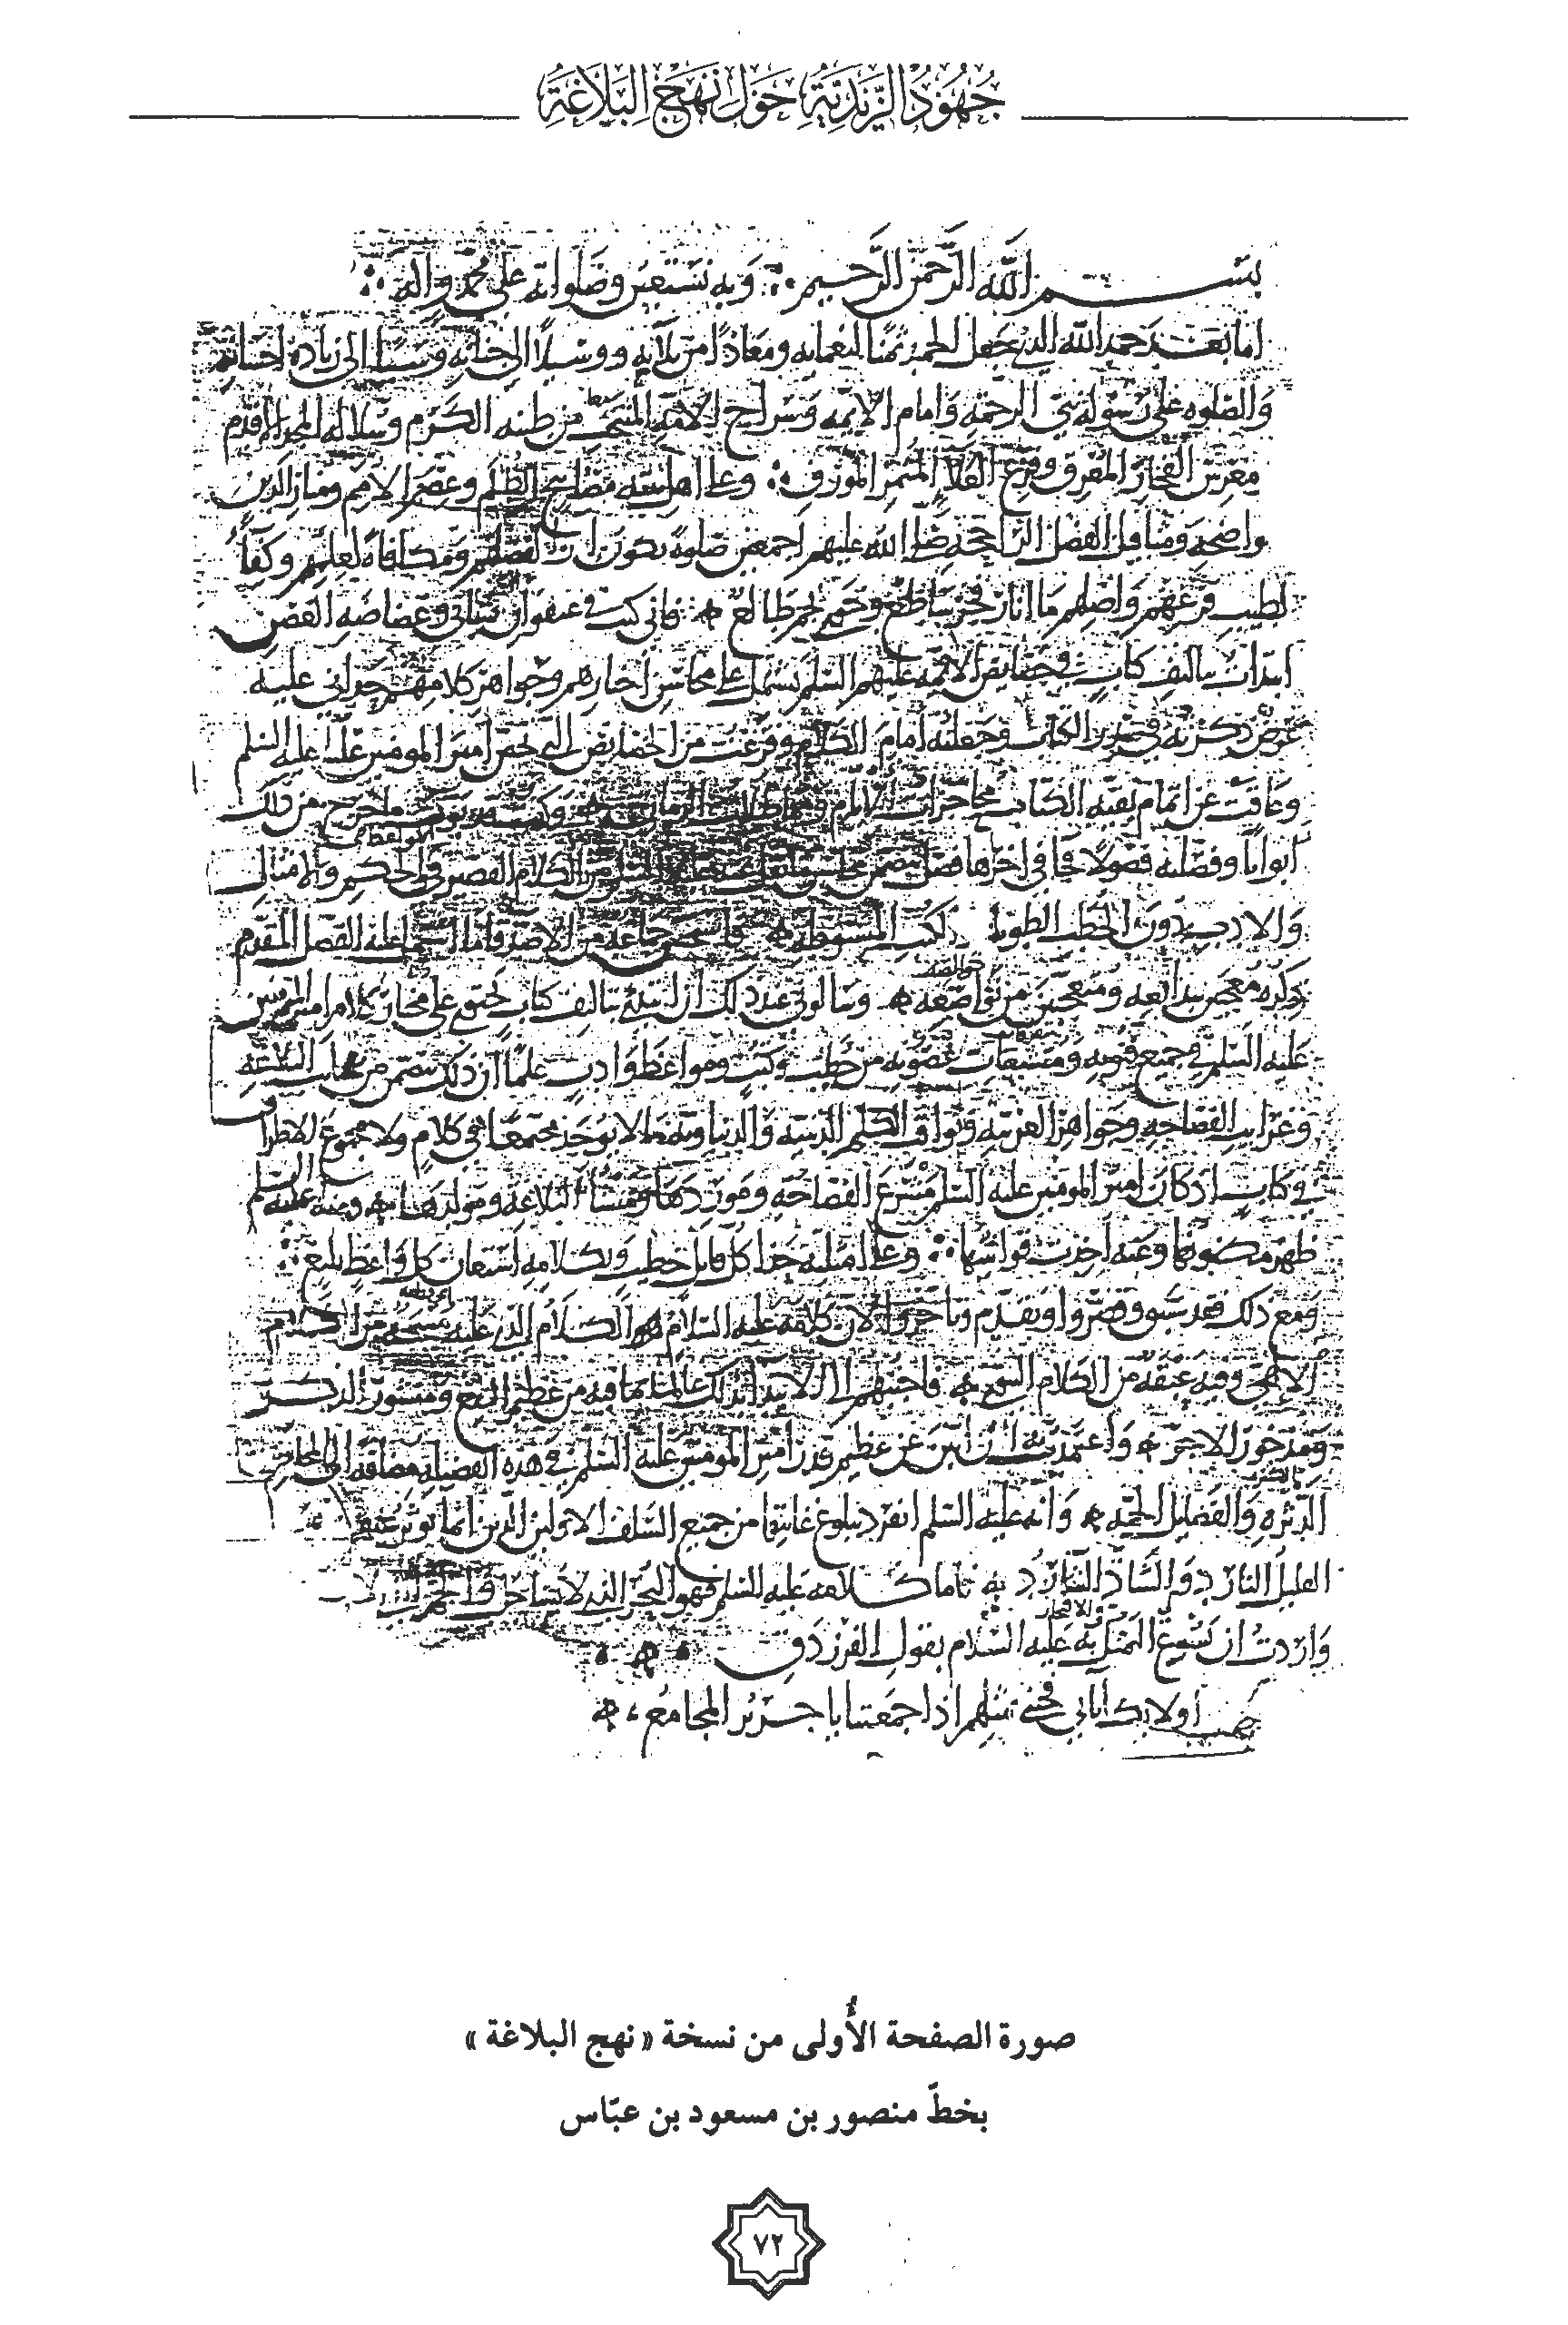 جُهُودُ الزَّيْدِيَّةِ حَوْلَ نَهْجِ الْبَلَاغَةِ
بسم الله الرحمن الرحيم وبه نستعين وصلواته على محمد وآله
اما بعد حمد الله الذي جعل الحمد ثمنا لنعمايه ومعاذا من بلايه ووسيلا الى جنانه وسببا الى زيادة احسانه
والصلوه على رسوله نبي الرحمة وامام الايمه وسراج الامه المنتخب من طينه الكرم وسلاله المجد الاقدم
مغرس الفخار المعرق وفرع العلاء المثمر المورق وعلى اهل بيته مصابيح الظلم وعصم الامم ومنار الدين
الواضحه ومثاقيل الفضل الراجحه صلى الله عليهم اجمعين صلوة تكون ازاء لفضلهم ومكافاة لعملهم وكفاء
لطيب فرعهم واصلهم ما انار فجر ساطع وخوى نجم طالع فاني كنت في عنفوان شبابي وغضاضه الغصن
ابتدات بتاليف كتاب في خصايص الايمه عليهم السلم يشتمل على محاسن اخبارهم وجواهر كلامهم حداني عليه
غرض ذكرته في صدر الكتاب وجعلته امام الكلام وفرغت من الخصايص التي تخص امير المومنين عليا عليه السلم
وعاقت عن اتمام بقيه الكتاب محاجزات الايام وكنت قد بوبت ما خرج من ذلك
ابوابا وفصلته فصولا فجا في اخرها فصل يتضمن محاسن ما نقل عنه عليه السلم من الكلام القصير في الحكم والامثال
والادب دون الخطب الطويله والكتب المبسوطه فاستحسن جماعه من الاصدقا ما اشتمل عليه الفصل المقدم
ذكره معجبين ببدايعه ومتعجبين من نواصعه وسالوني عند ذلك ان ابتدئ بتاليف كتاب يحتوي على مختار كلام امير المومنين
عليه السلم في جميع فنونه ومتشعبات غصونه من خطب وكتب ومواعظ وادب علما ان ذلك يتضمن من عجايب البلاغه
وغرايب الفصاحه وجواهر العربيه وثواقب الكلم الدينيه والدنياويه ما لا يوجد مجتمعا في كلام ولا مجموع الاطراف
في كتاب اذ كان امير المومنين عليه السلم مشرع الفصاحه وموردها ومنشأ البلاغه ومولدها ومنه عليه السلم
ظهر مكنونها وعنه اخذت قوانينها وعلى امثلته حذا كل قايل خطيب وبكلامه استعان كل واعظ بليغ
ومع ذلك فقد سبق وقصروا وتقدم وتاخروا لان كلامه عليه السلام الكلام الذي عليه مسحه من الكلام
الالهي وفيه عبقه من الكلام النبوي فاجبتهم الى الابتدا بذلك عالما بما فيه من عظيم النفع ومنشور الذكر
ومذخور الاجر واعتمدت به ان ابين عن عظيم قدر امير المومنين عليه السلم في هذه الفضيله مضافه الى المحاسن
الدثره والفضايل الجمه وانه عليه السلم انفرد ببلوغ غايتها من جميع السلف الاولين الذين انما يوثر عنهم
القليل النادر والشاذ الشارد فاما كلامه عليه السلم فهو البحر الذي لا يساجل
واردت ان يسوغ لي التمثل في الافتخار به عليه السلام بقول الفرزدق
اوليك آبائي فجئني بمثلهم اذا جمعتنا يا جرير المجامع
صورة الصفحة الأُولى من نسخة «نهج البلاغة»
بخطّ منصور بن مسعود بن عبّاس
٧٢